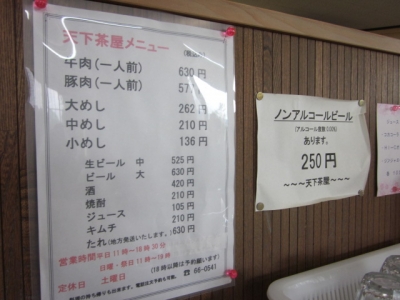 天下茶屋メニュー
(税込み)
牛肉(一人前) 630円
豚肉(一人前)
大めし 262円
中めし 210円
小めし 136円
生ビール 中 525円
ビール 大 630円
酒 420円
焼酎 210円
ジュース 105円
キムチ 210円
たれ(地方発送いたします。) 630円
営業時間平日11時~18時30分
日曜・祭日11時~19時
(18時以降は予約願います)
定休日 土曜日 ☎66-0541
ノンアルコールビール
(アルコール度数0.00%)
あります。
250円
~~~天下茶屋~~~